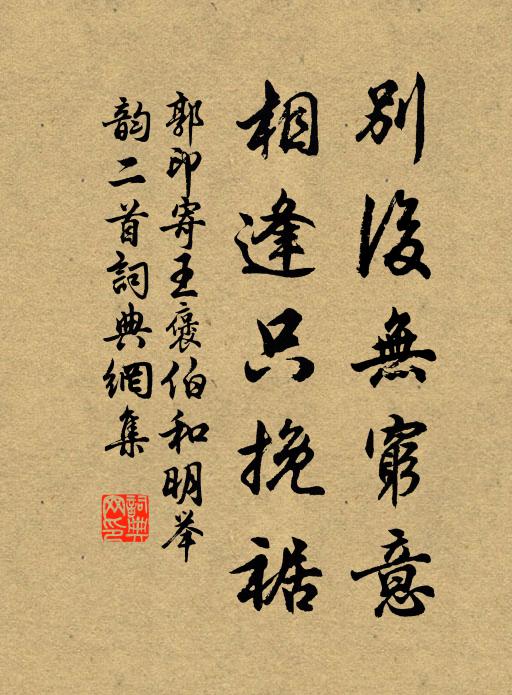 別後無窮意
相逢只挽裾
郭印寄王褒伯和明举
韵二首詞典網集
詞典網印